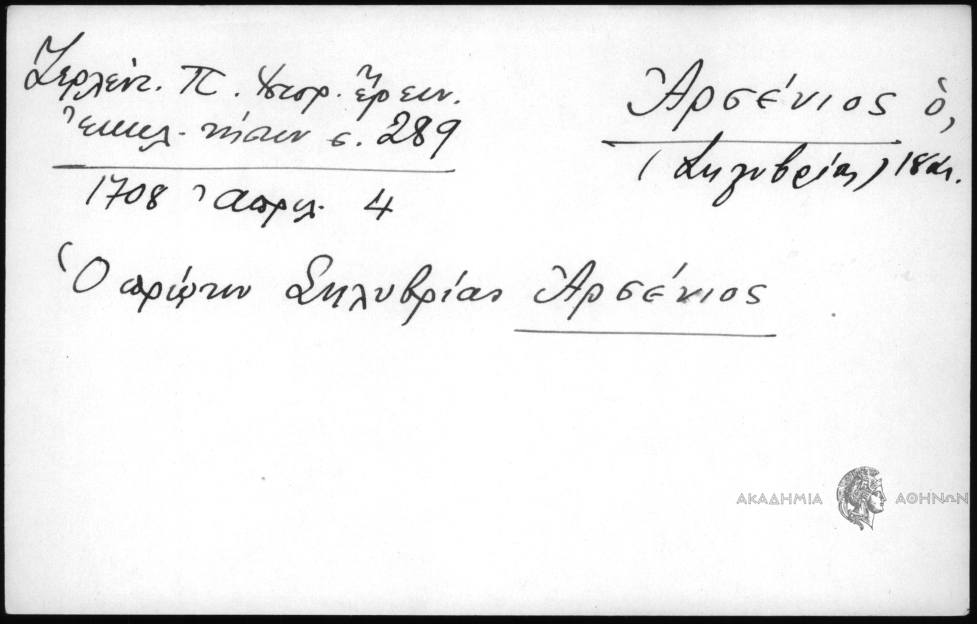 Ζερλέντ. Π. Ἱστορ. Ἔρευν.
Ἐκκλ. νήσων σ. 289
1708 Ἀπριλ. 4
Ἀρσένιος ὁ,
(Σηλυβρίας) 18 αἰ.
Ὁ πρώην Σηλυβρίας Ἀρσένιος
ΑΚΑΔΗΜΙΑ ΑΘΗΝΩΝ